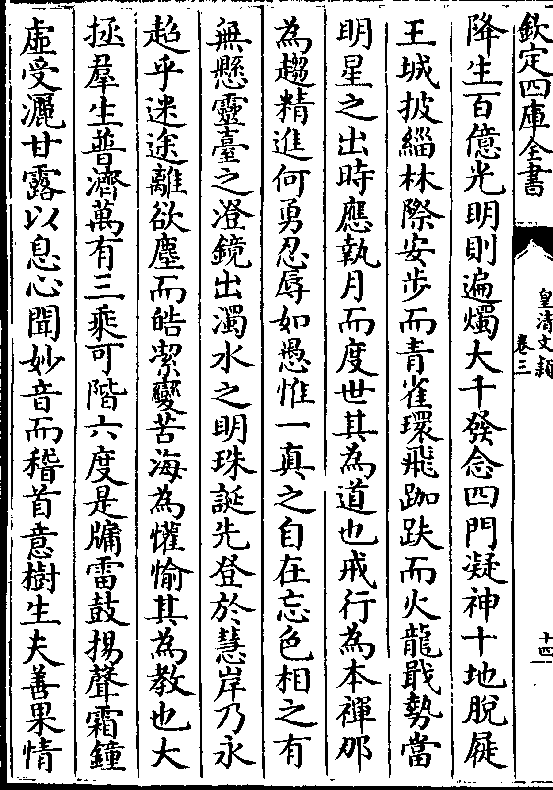 欽定四庫全書
皇清文頴
卷三
十四
降生百億光明則遍燭大千發念四門凝神十地脫屣
王城披緇林際安步而青雀環飛跏趺而火龍戢勢當
明星之出時應執月而度世其為道也戒行為本禪那
為趨精進何勇忍辱如愚惟一真之自在忘色相之有
無懸靈臺之澄鏡出濁水之明珠誕先登於慧岸乃永
超乎迷途離欲塵而皓潔變苦海為懽愉其為教也大
拯羣生普濟萬有三乘可階六度是牖雷鼓揚聲霜鐘
虛受灑甘露以息心聞妙音而稽首意樹生夫善果情